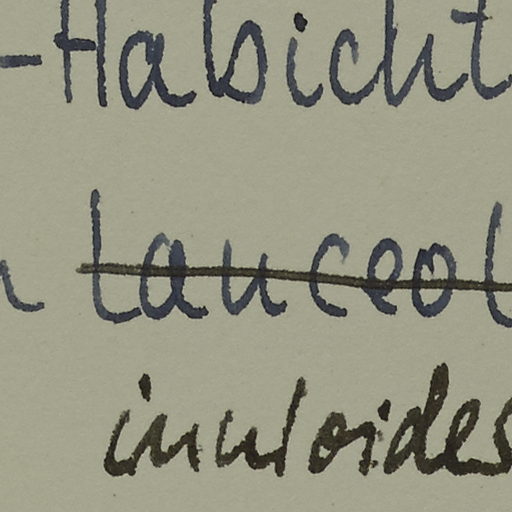 -Habicht
lanceol
inuloides